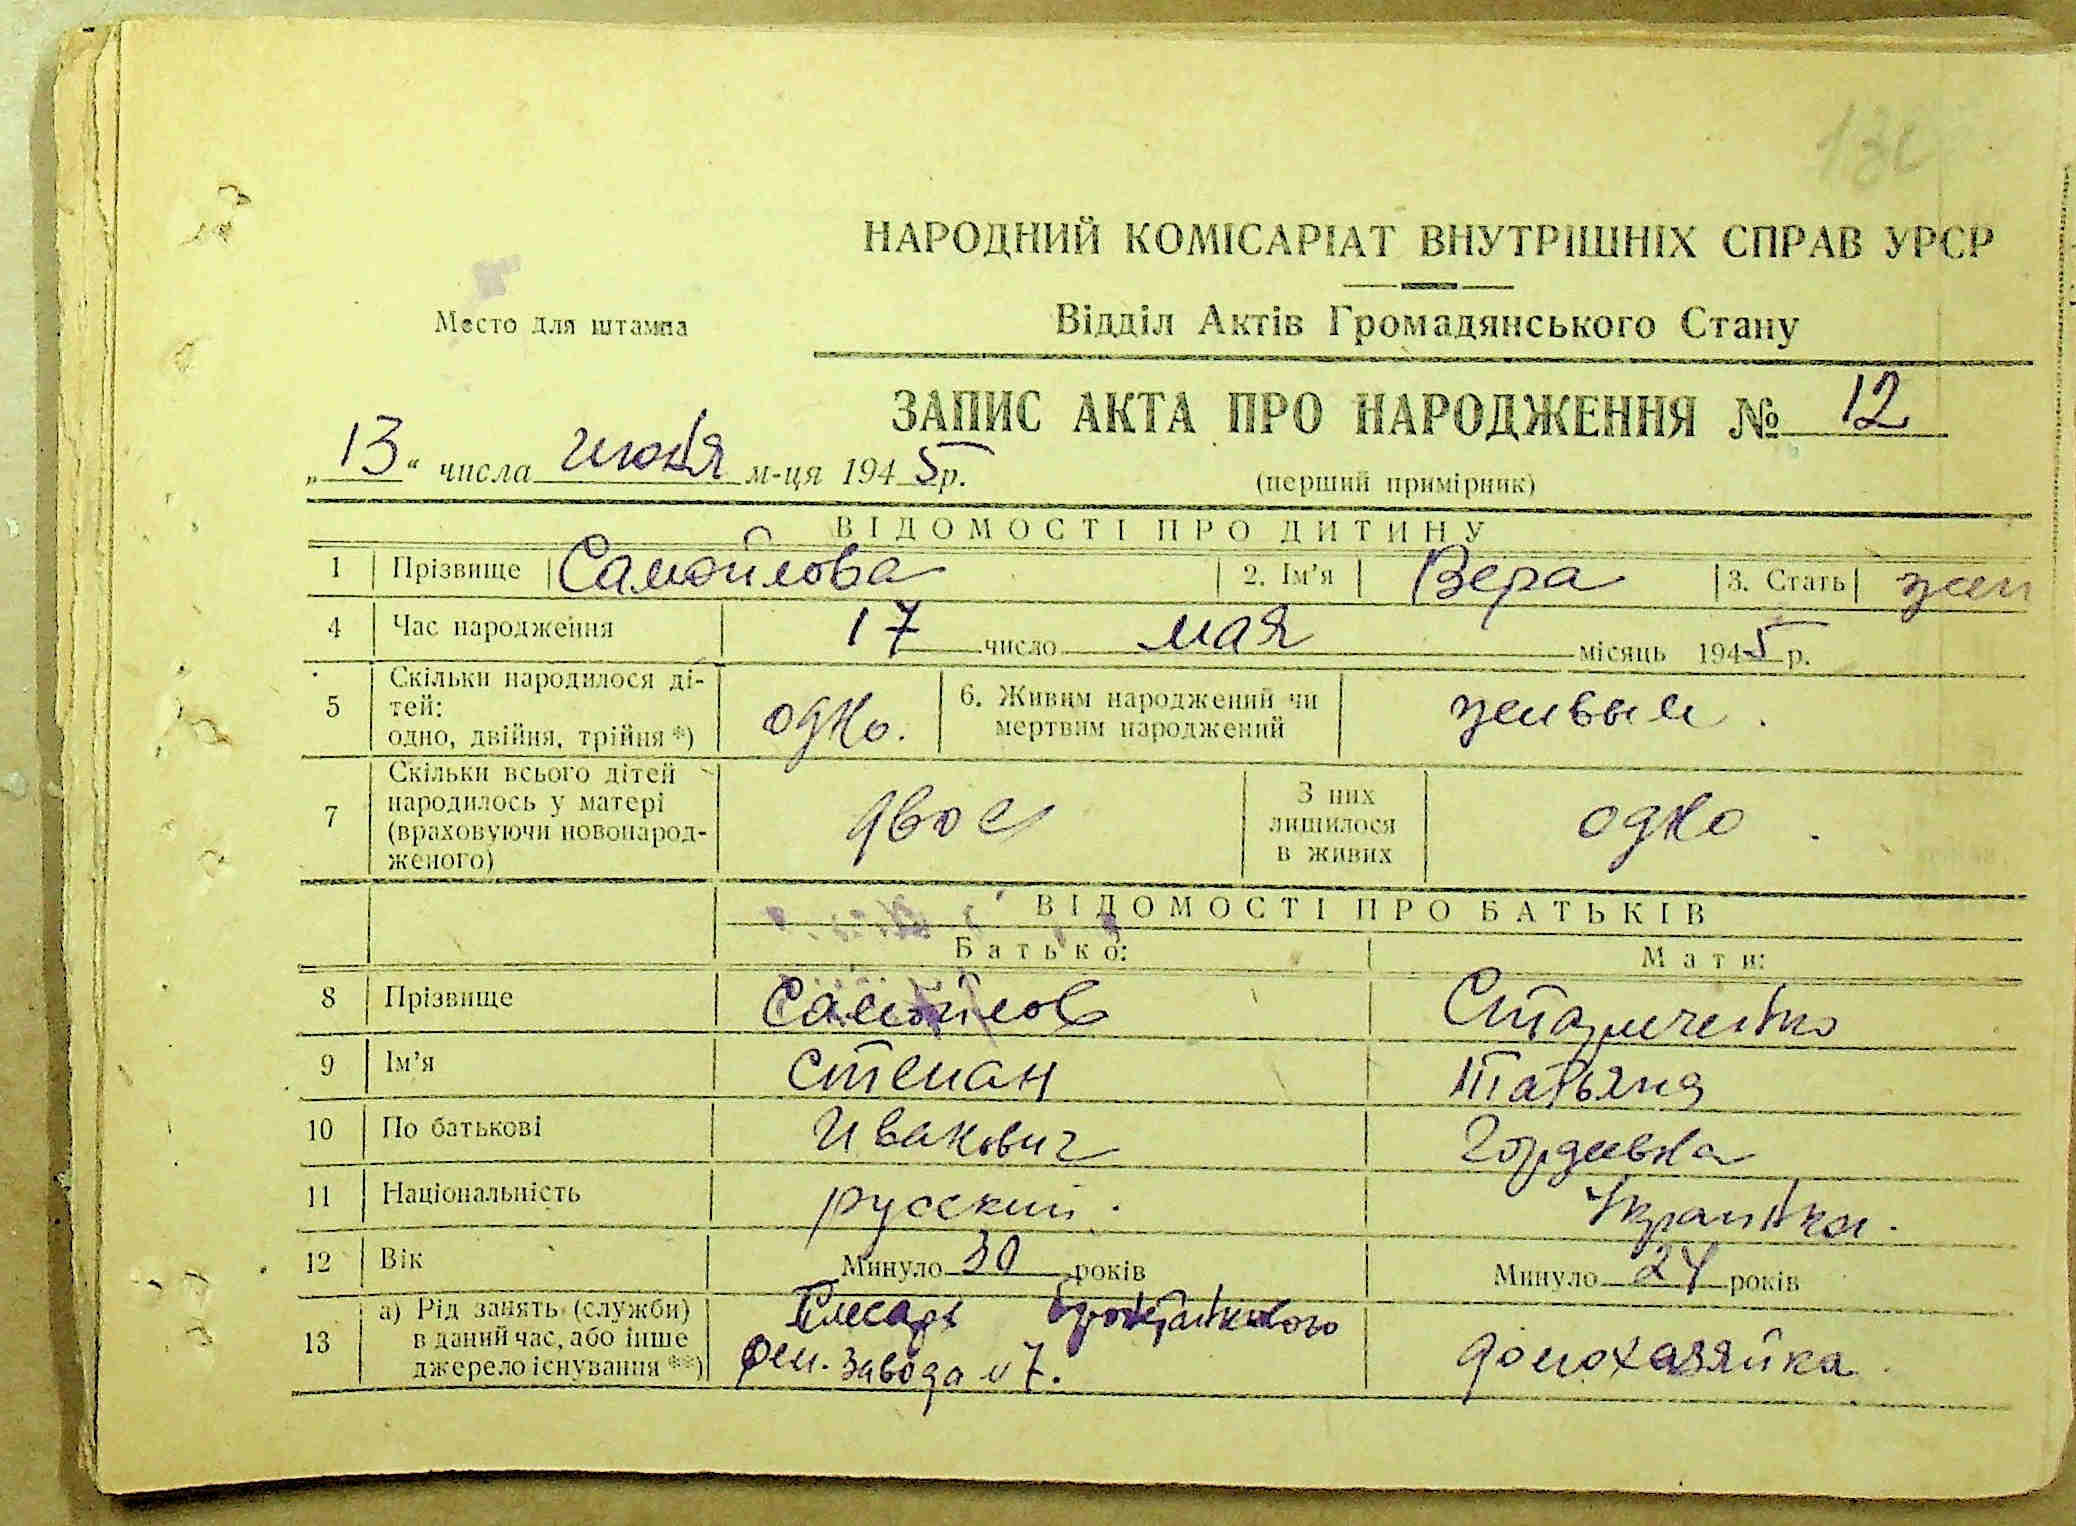 НАРОДНИЙ КОМІСАРІАТ ВНУТРІШНІХ СПРАВ УРСР
Место для штампа
Відділ Актів Громадянського Стану
ЗАПИС АКТА ПРО НАРОДЖЕННЯ № 12
„13“ числа июня м-ця 1945р.
(перший примірник)
ВІДОМОСТІ ПРО ДИТИНУ
1 Прізвище Самойлова 2. Ім'я Вера 3. Стать жен
4 Час народження 17 число мая місяць 1945 р.
5 Скільки народилося ді-
тей:
одно, двійня, трійня *) одно. 6. Живим народжений чи
мертвим народжений живым.
7 Скільки всього дітей
народилось у матері
(враховуючи новонарод-
женого) двое З них
лишилося
в живих одно.
ВІДОМОСТІ ПРО БАТЬКІВ
Батько: Мати:
8 Прізвище Самойлов
9 Ім'я Степан Татьяна
10 По батькові Иванович Гордеевна
11 Національність русский. Украинка.
12 Вік Минуло 30 років Минуло 24 років
13 а) Рід занять (служби)
в даний час, або інше
джерело існування **) Слесарь бронетанкового
рем. завода № 7. домохазяйка.